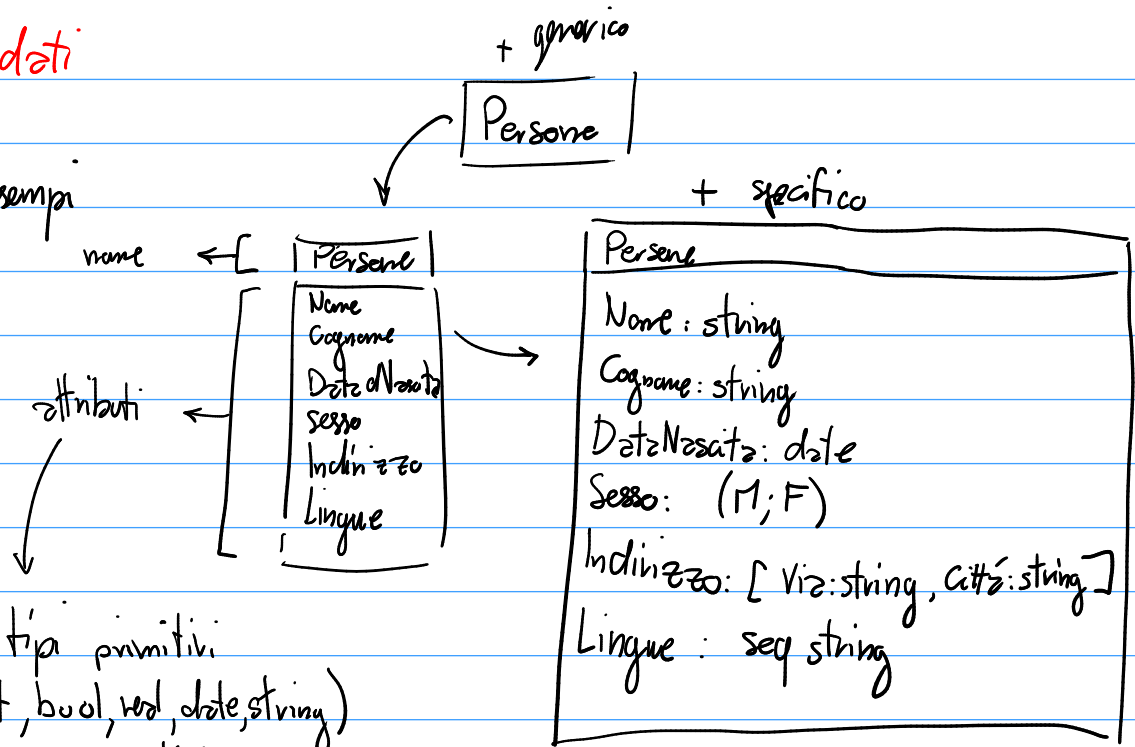 dati
+ generico
Persone
sempi
+ specifico
nome
Persone
Persone
Nome
Cognome
DataNascita
Sesso
Indirizzo
Lingue
attributi
Nome: string
Cognome: string
DataNascita: date
Sesso: (M; F)
Indirizzo: [Via:string, Città:string]
Lingue: seq string
tipi primitivi
, bool, real, date, string)